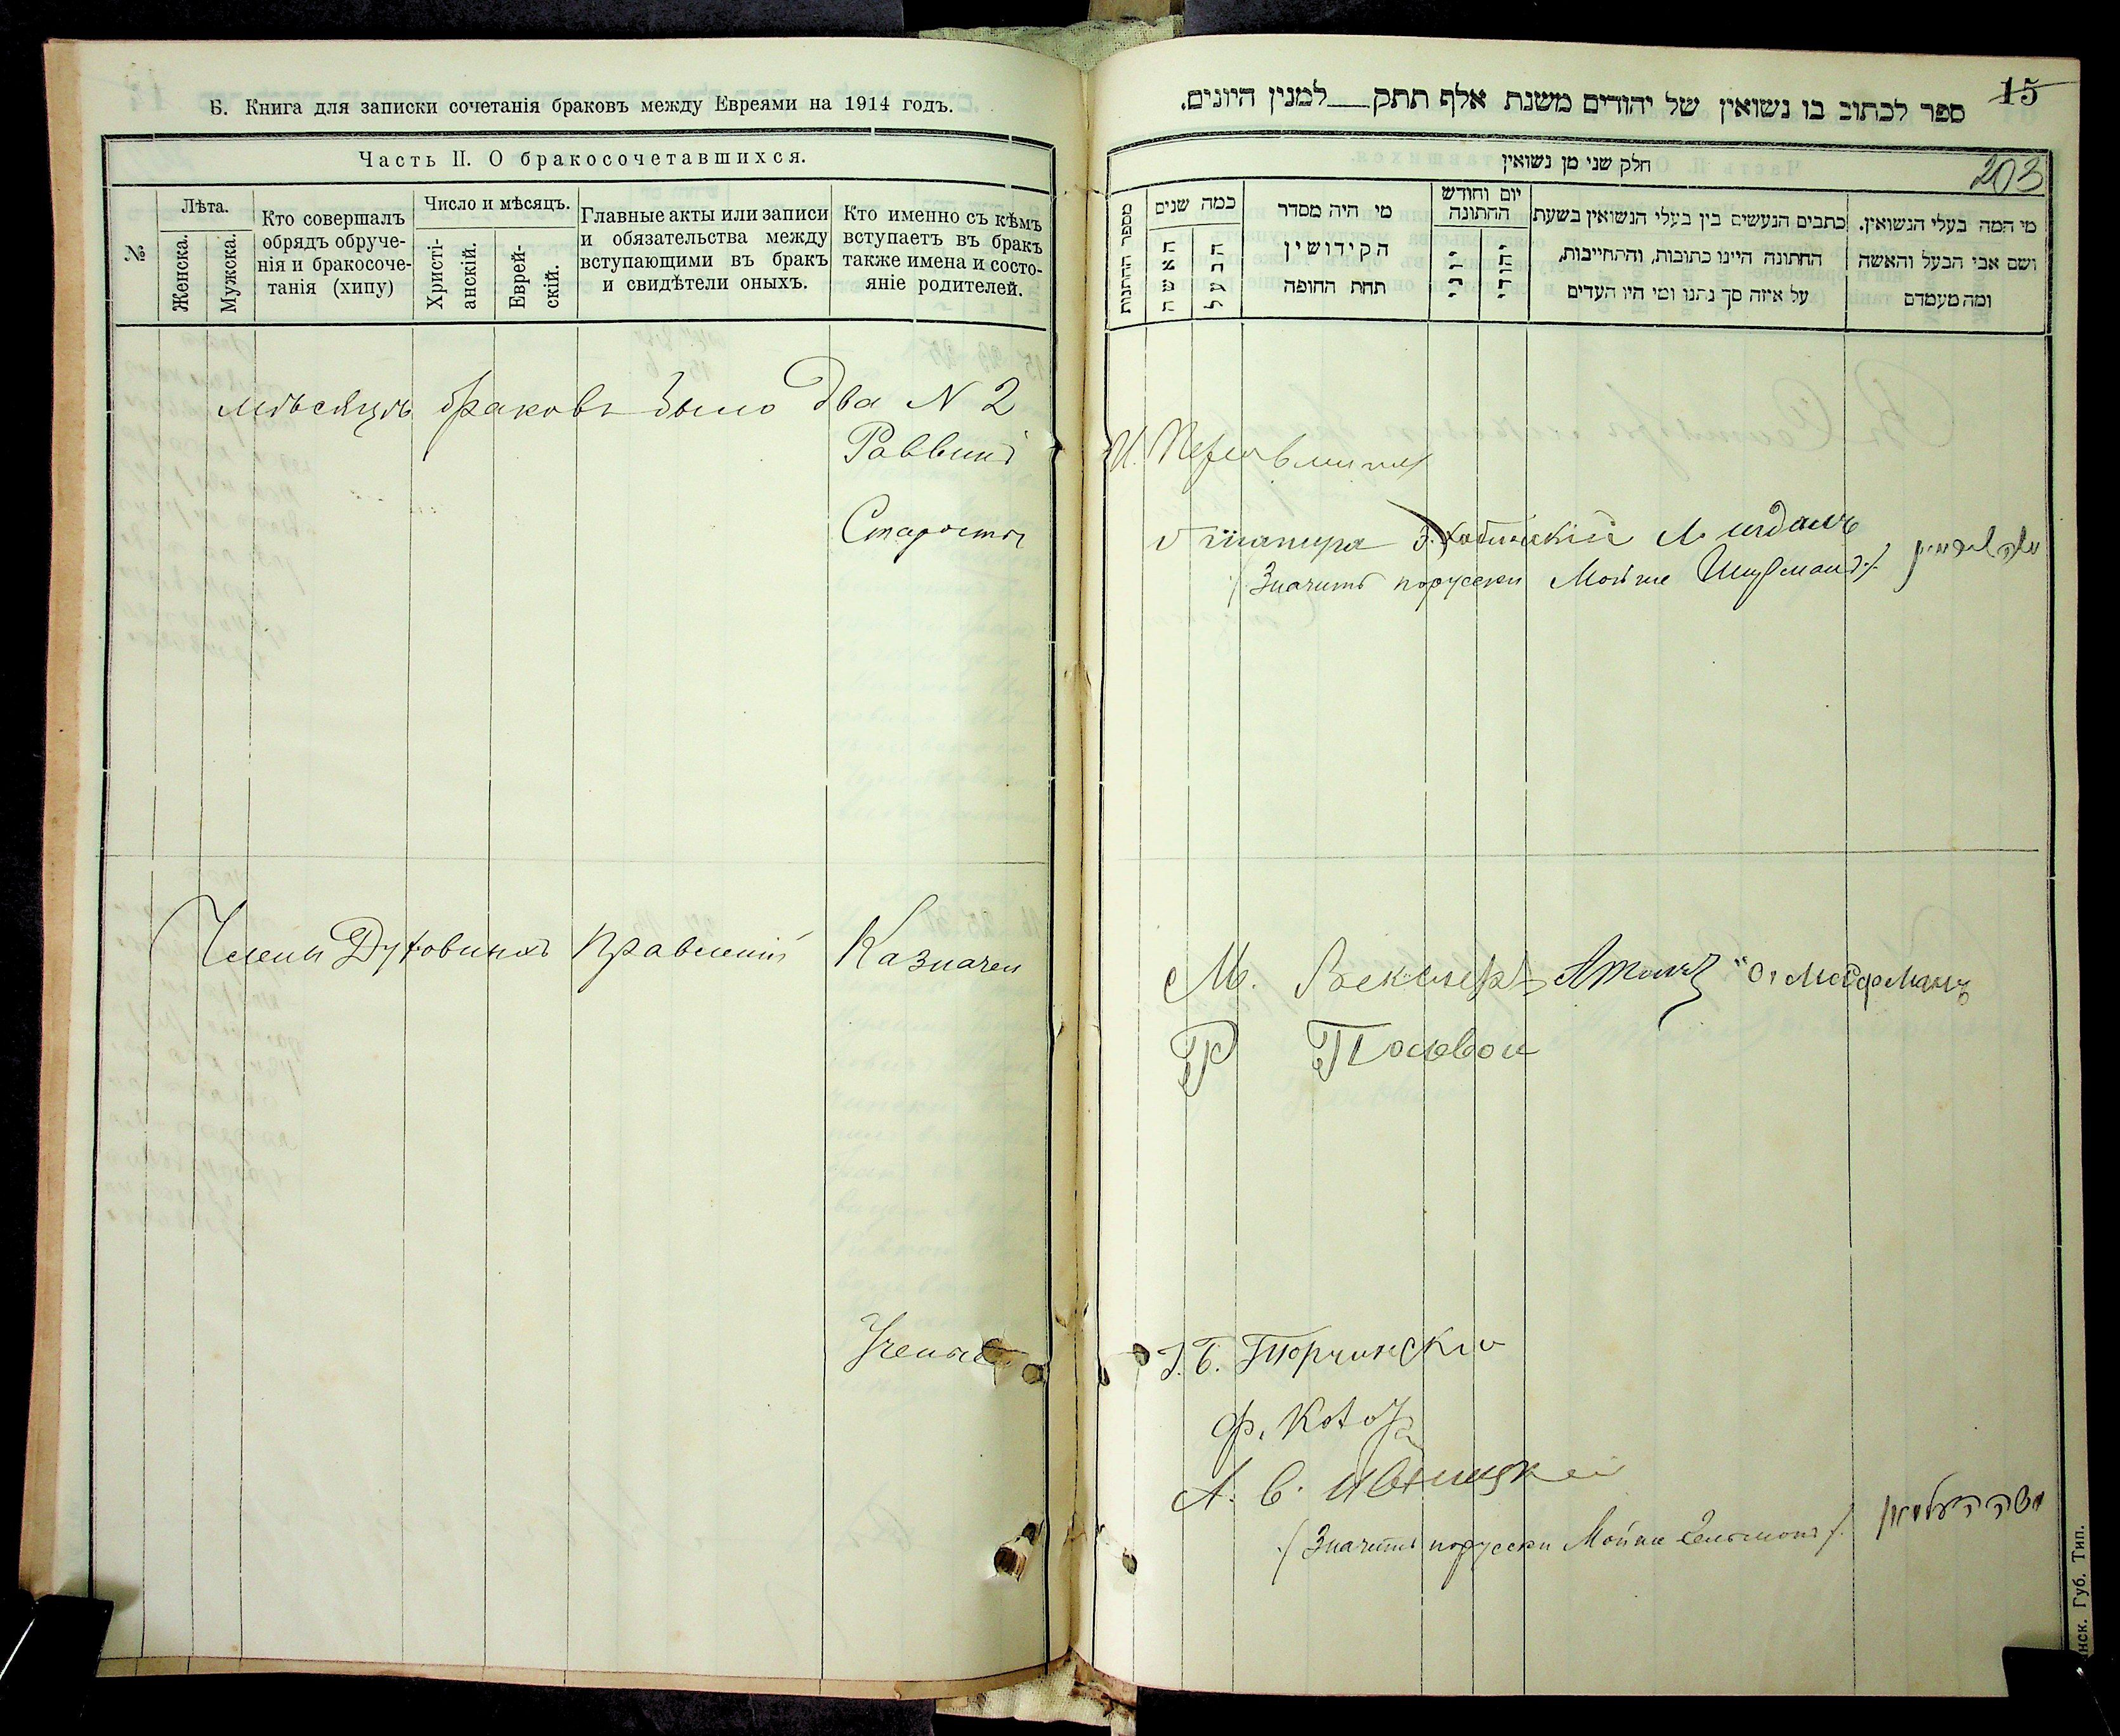 Б. Книга для записки сочетанія браковъ между Евреями на 1914 годъ.
Часть II. О бракосочетавшихся.
№
Лѣта.
Женска.
Мужска.
Кто совершалъ
обрядъ обруче-
нія и бракосоче-
танія (хипу)
Число и мѣсяцъ.
Христі-
анскій.
Еврей-
скій.
Главные акты или записи
и обязательства между
вступающими въ бракъ
и свидѣтели оныхъ.
Кто именно съ кѣмъ
вступаетъ въ бракъ
также имена и состо-
яніе родителей.
мѣсяцъ браковъ было два N 2
Раввинъ
Старосты
Члены Духовныхъ Правленій
Казначеи
Ученые
15
ספר לכתוב בו נשואין של יהודים משנת אלף תתק___למנין היונים.
203
חלק שני מן נשואין
מספר החתונות
כמה שנים
האשה
הבעל
מי היה מסדר
הקידושין
תחת החופה
יום וחודש
החתונה
יוני
יהודי
כתבים הנעשים בין בעלי הנשואין בשעת
החתונה היינו כתובות, והתחייבות,
על איזה סך נתנו ומי היו העדים
מי המה בעלי הנשואין.
ושם אבי הבעל והאשה
ומה מעמדם
И.
Шапира
/Значитъ порусски Мойше Шурманъ/.
М. Векслеръ
Р Полевой
Г. Б. Торчинскій
Ф. Котъ
А. С.
/Значитъ порусски Мойше
нск. Губ. Тип.